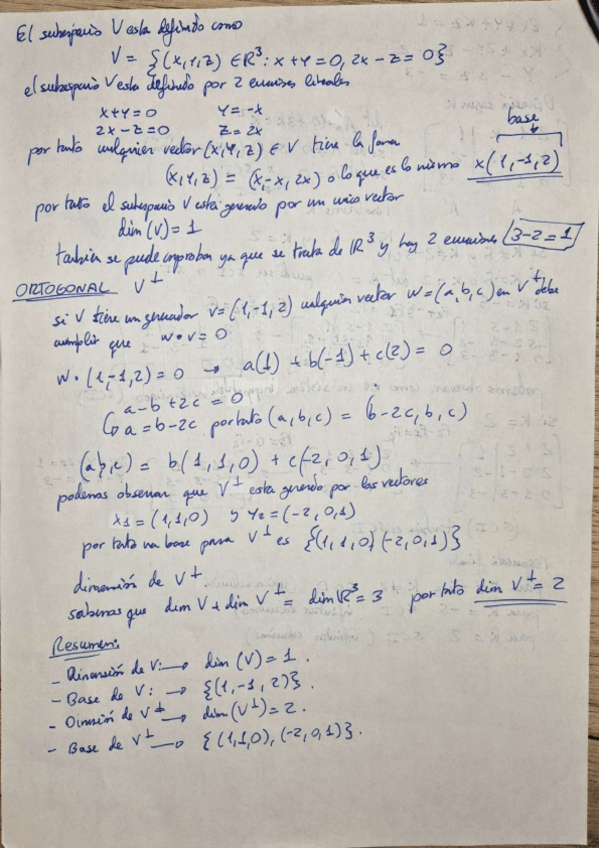 El subespacio V esta definido como
V = {(x,y,z) ∈ R³: x+y=0, 2x-z=0}
el subespacio V esta definido por 2 ecuaciones lineales
x+y=0 y=-x
2x-z=0 z=2x
base
por tanto cualquier vector (x,y,z) ∈ V tiene la forma
(x,y,z) = (x,-x,2x) o lo que es lo mismo x(1,-1,2)
por tanto el subespacio V esta generado por un unico vector
dim(V)=1
tambien se puede comprobar ya que se trata de R³ y hay 2 ecuaciones 3-2=1
ORTOGONAL V⊥
si V tiene un generador v=(1,-1,2) cualquier vector w=(a,b,c) en V⊥ debe
cumplir que w•v=0
w•(1,-1,2)=0 → a(1)+b(-1)+c(2)=0
a-b+2c=0
↳ a=b-2c por tanto (a,b,c) = (b-2c,b,c)
(a,b,c) = b(1,1,0) + c(-2,0,1)
podemos observar que V⊥ esta generado por los vectores
x₁=(1,1,0) y y₂=(-2,0,1)
por tanto una base para V⊥ es {(1,1,0)(-2,0,1)}
dimensión de V⊥
sabemos que dim V + dim V⊥ = dim R³ = 3 por tanto dim V⊥ = 2
Resumen:
- Dimensión de V: → dim(V)=1.
- Base de V: → {(1,-1,2)}.
- Dimensión de V⊥ → dim(V⊥)=2.
- Base de V⊥ → {(1,1,0),(-2,0,1)}.